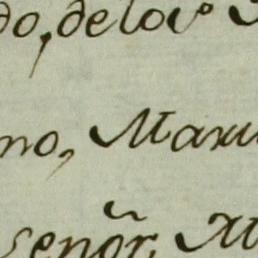 do, de los
no, Maxi
señor, M